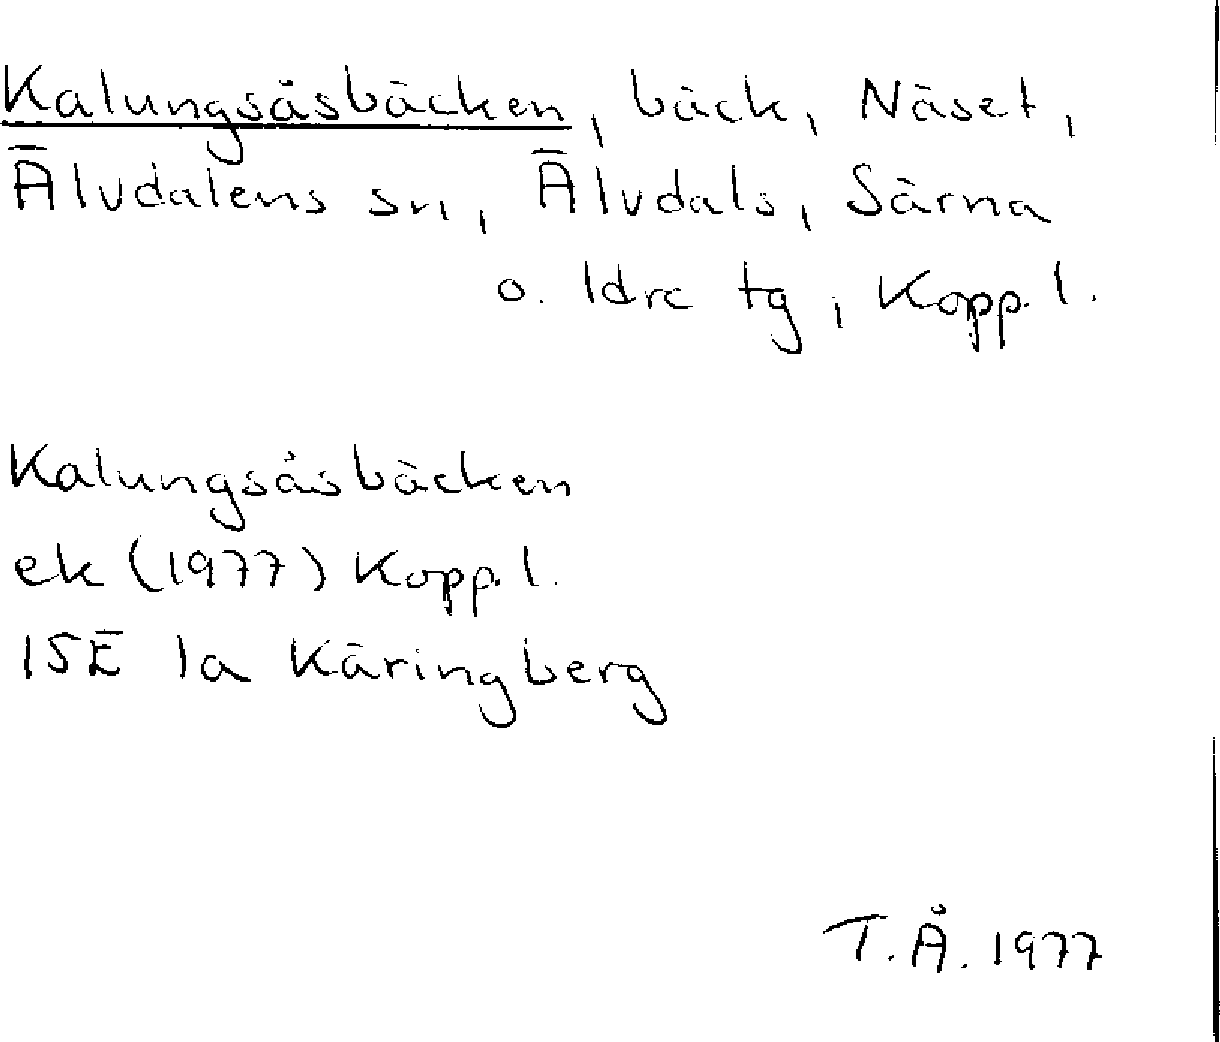 Kalungsåsbäcken, bäck, Näset,
Älvdalens sn, Älvdals, Särna
o. Idre tg, Kopp. l.
Kalungsåsbäcken
ek (1977) Kopp. l.
15E 1a Käringberg
T.Å. 1977